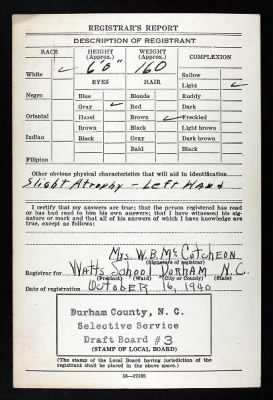 REGISTRAR'S REPORT
DESCRIPTION OF REGISTRANT
RACE HEIGHT (Approx.) WEIGHT (Approx.) COMPLEXION
White ✓ 6'0" 160 Sallow
EYES HAIR Light ✓
Negro Blue Blonde Ruddy
Gray ✓ Red Dark
Oriental Hazel Brown ✓ Freckled
Brown Black Light brown
Indian Black Gray Dark brown
Bald Black
Filipino
Other obvious physical characteristics that will aid in identification
Slight Atrophy - Left Hand
I certify that my answers are true; that the person registered has read
or has had read to him his own answers; that I have witnessed his sig-
nature or mark and that all of his answers of which I have knowledge
are true, except as follows:
Mrs W. B. McCutcheon
(Signature of registrar)
Registrar for Watts School Durham N.C.
(Precinct) (Ward) (City or County) (State)
Date of registration October 16, 1940
Durham County, N. C.
Selective Service
Draft Board #3
(STAMP OF LOCAL BOARD)
(The stamp of the Local Board having jurisdiction of the
registrant shall be placed in the above space.)